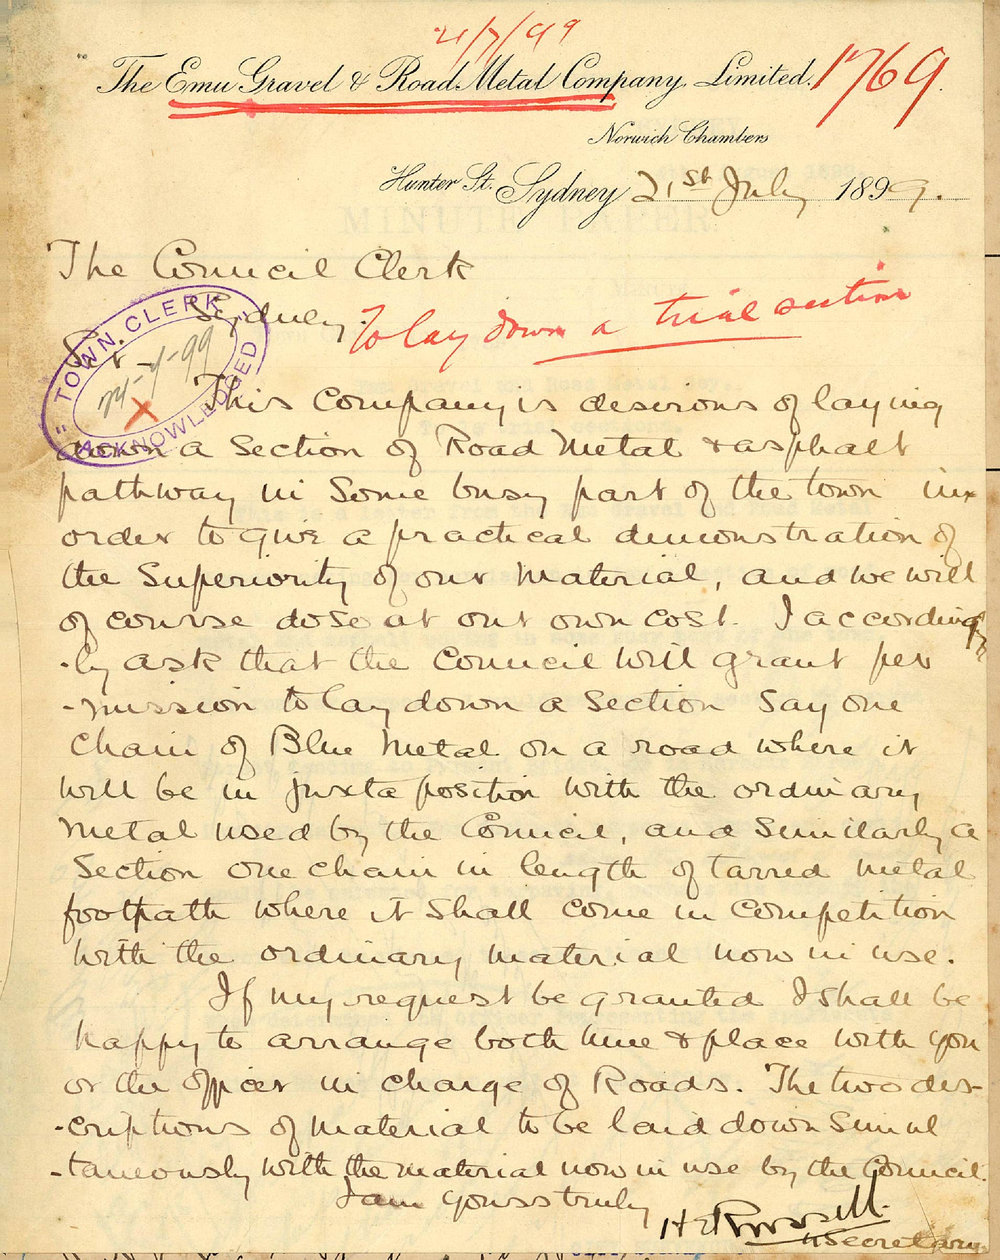 21/7/99
The Emu Gravel & Road Metal Company, Limited.
1769.
Norwich Chambers
Hunter St. Sydney 21st July 1899.
The Council Clerk
Sydney.
To lay down a trial section
TOWN CLERK
24-7-99
X
ACKNOWLEDGED
Sir
This Company is desirous of laying
down a Section of Road Metal & asphalt
pathway in Some busy part of the town in
order to give a practical demonstration of
the Superiority of our Material, and we will
of course do so at our own cost. I according
-ly ask that the Council will grant per
-mission to lay down a Section Say one
Chain of Blue Metal on a road where it
will be in juxta position with the ordinary
Metal used by the Council, and Similarly a
Section one chain in length of tarred metal
footpath where it Shall come in Competition
with the ordinary material now in use.
If my request be granted I shall be
happy to arrange both time & place with you
or the officer in charge of Roads. The two des-
-criptions of Material to be laid down Simul
-taneously with the material now in use by the Council.
I am yours truly
Secretary
MINUTE PAPER